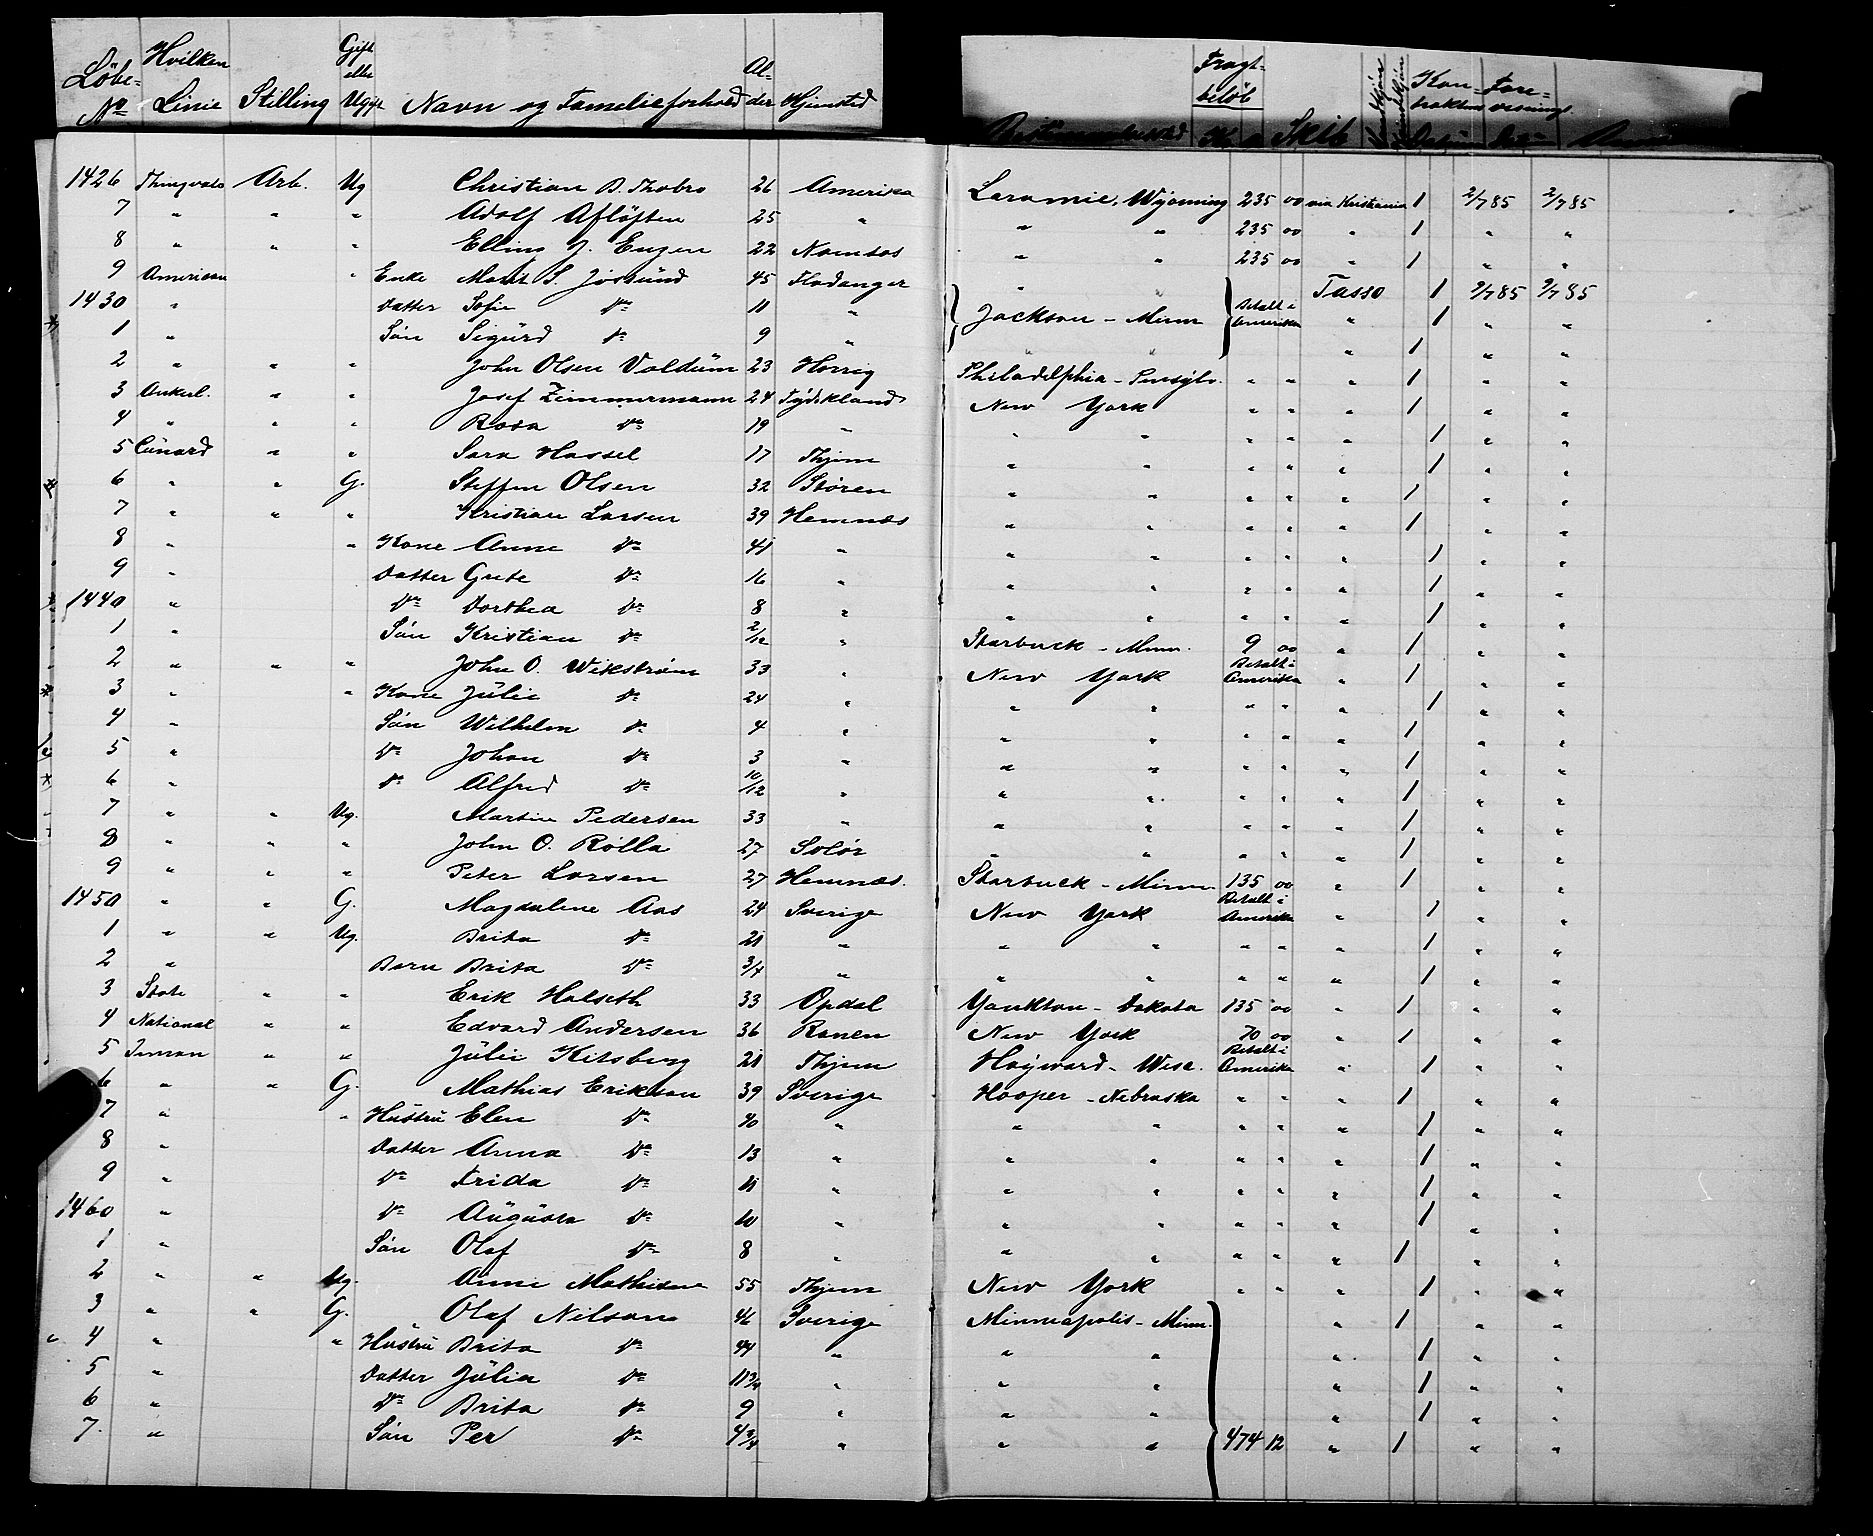 Löbe- No Hvilken Linie Stilling Gift elle Ugift Navn og Famelieforhold Al- der Hjemsted Fragt- beløb Kr Skib Kon- trakten Fore- visning
1426 Thingvala Arb. Ug Christian B. Thobro 26 Amerika Laramie, Wyoming 235 00 via Kristiania 1 2/7 85 2/7 85
7 " " " Adolf Aflöften 25 " " " 235 00 " 1 " "
8 " " " Elling J. Engen 22 Namsos " " 235 00 " 1 " "
9 American " Enke Marit S. Jösund 45 Fladanger " Tasso 1 9/7 85 9/7 85
1430 " Datter Sofie Do 11 " Jackson - Minn Betalt i Amerika " 1 " "
1 " Sön Sigurd Do 9 " " " " 1 " "
2 " " " John Olsen Valdum 23 Horrig Philadelphia - Pensylv. " " " 1 " "
3 Ankerl. " " Josef Zimmermann 24 Tydskland New York " " " 1 " "
4 " " " Rosa Do 19 " " " " " " 1 " "
5 Cunard " " Sara Hassel 17 Thjem " " " " " 1 " "
6 " " G. Steffen Olsen 32 Stören " " " " " 1 " "
7 " " " Kristian Larsen 39 Hemnæs " " " " " 1 " "
8 " " Kone Anne Do 41 " " " " " " 1 " "
9 " Datter Grete Do 16 " " " " " " 1 " "
1440 " Do Dorthea Do 8 " " " " " " 1 " "
1 " Sön Kristian Do 2/12 " Starbuck - Minn. 9 00 " 1 " "
2 " " " John O. Wikström 33 " New York Betalt i Amerika " 1 " "
3 " " Kone Julie Do 24 " " " " " " 1 " "
4 " Sön Wilhelm Do 4 " " " " " " 1 " "
5 " Do Johan Do 3 " " " " " " 1 " "
6 " Do Alfred Do 10/12 " " " " " " 1 " "
7 " " Ug. Martin Pedersen 33 " " " " " " 1 " "
8 " " " John O. Rolla 27 Solör " " " " " 1 " "
9 " " " Peter Larsen 27 Hemnæs. Starbuck - Minn 135 00 " 1 " "
1450 " " G. Magdalene Aas 24 Sverige New York Betalt i Amerika " 1 " "
1 " " Ug. Brita Do 21 " " " " " " 1 " "
2 " Barn Brita Do 3/4 " " " " " " 1 " "
3 State " " Erik Halseth 33 Opdal Yankton - Dakota 135 00 " 1 " "
4 National " " Edvard Andersen 36 Ranen New York 70 00 " 1 " "
5 Inman " " Julie Kitsberg 21 Thjem Hayward - Wisc. Betalt i Amerika " 1 " "
6 " " G. Mathias Erikson 39 Sverige Hooper - Nebraska " " " 1 " "
7 " " Hustru Elen Do 40 " " " " " " 1 " "
8 " Datter Anna Do 13 " " " " " " 1 " "
9 " Do Frida Do 11 " " " " " " 1 " "
1460 " Do Augusta Do 10 " " " " " " 1 " "
1 " Sön Olaf Do 8 " " " " " " 1 " "
2 " " Ug. Anne Mathisen 55 Thjem New York " " " 1 " "
3 " " G. Olaf Nilson 46 Sverige Minneapolis - Minn. " 1 " "
4 " " Hustru Brita Do 44 " " " " 1 " "
5 " Datter Julia Do 11 3/4 " " " " 1 " "
6 " Do Brita Do 9 " " " " 1 " "
7. " Sön Per Do 4 3/4 " " " 474 12 " 1 " "